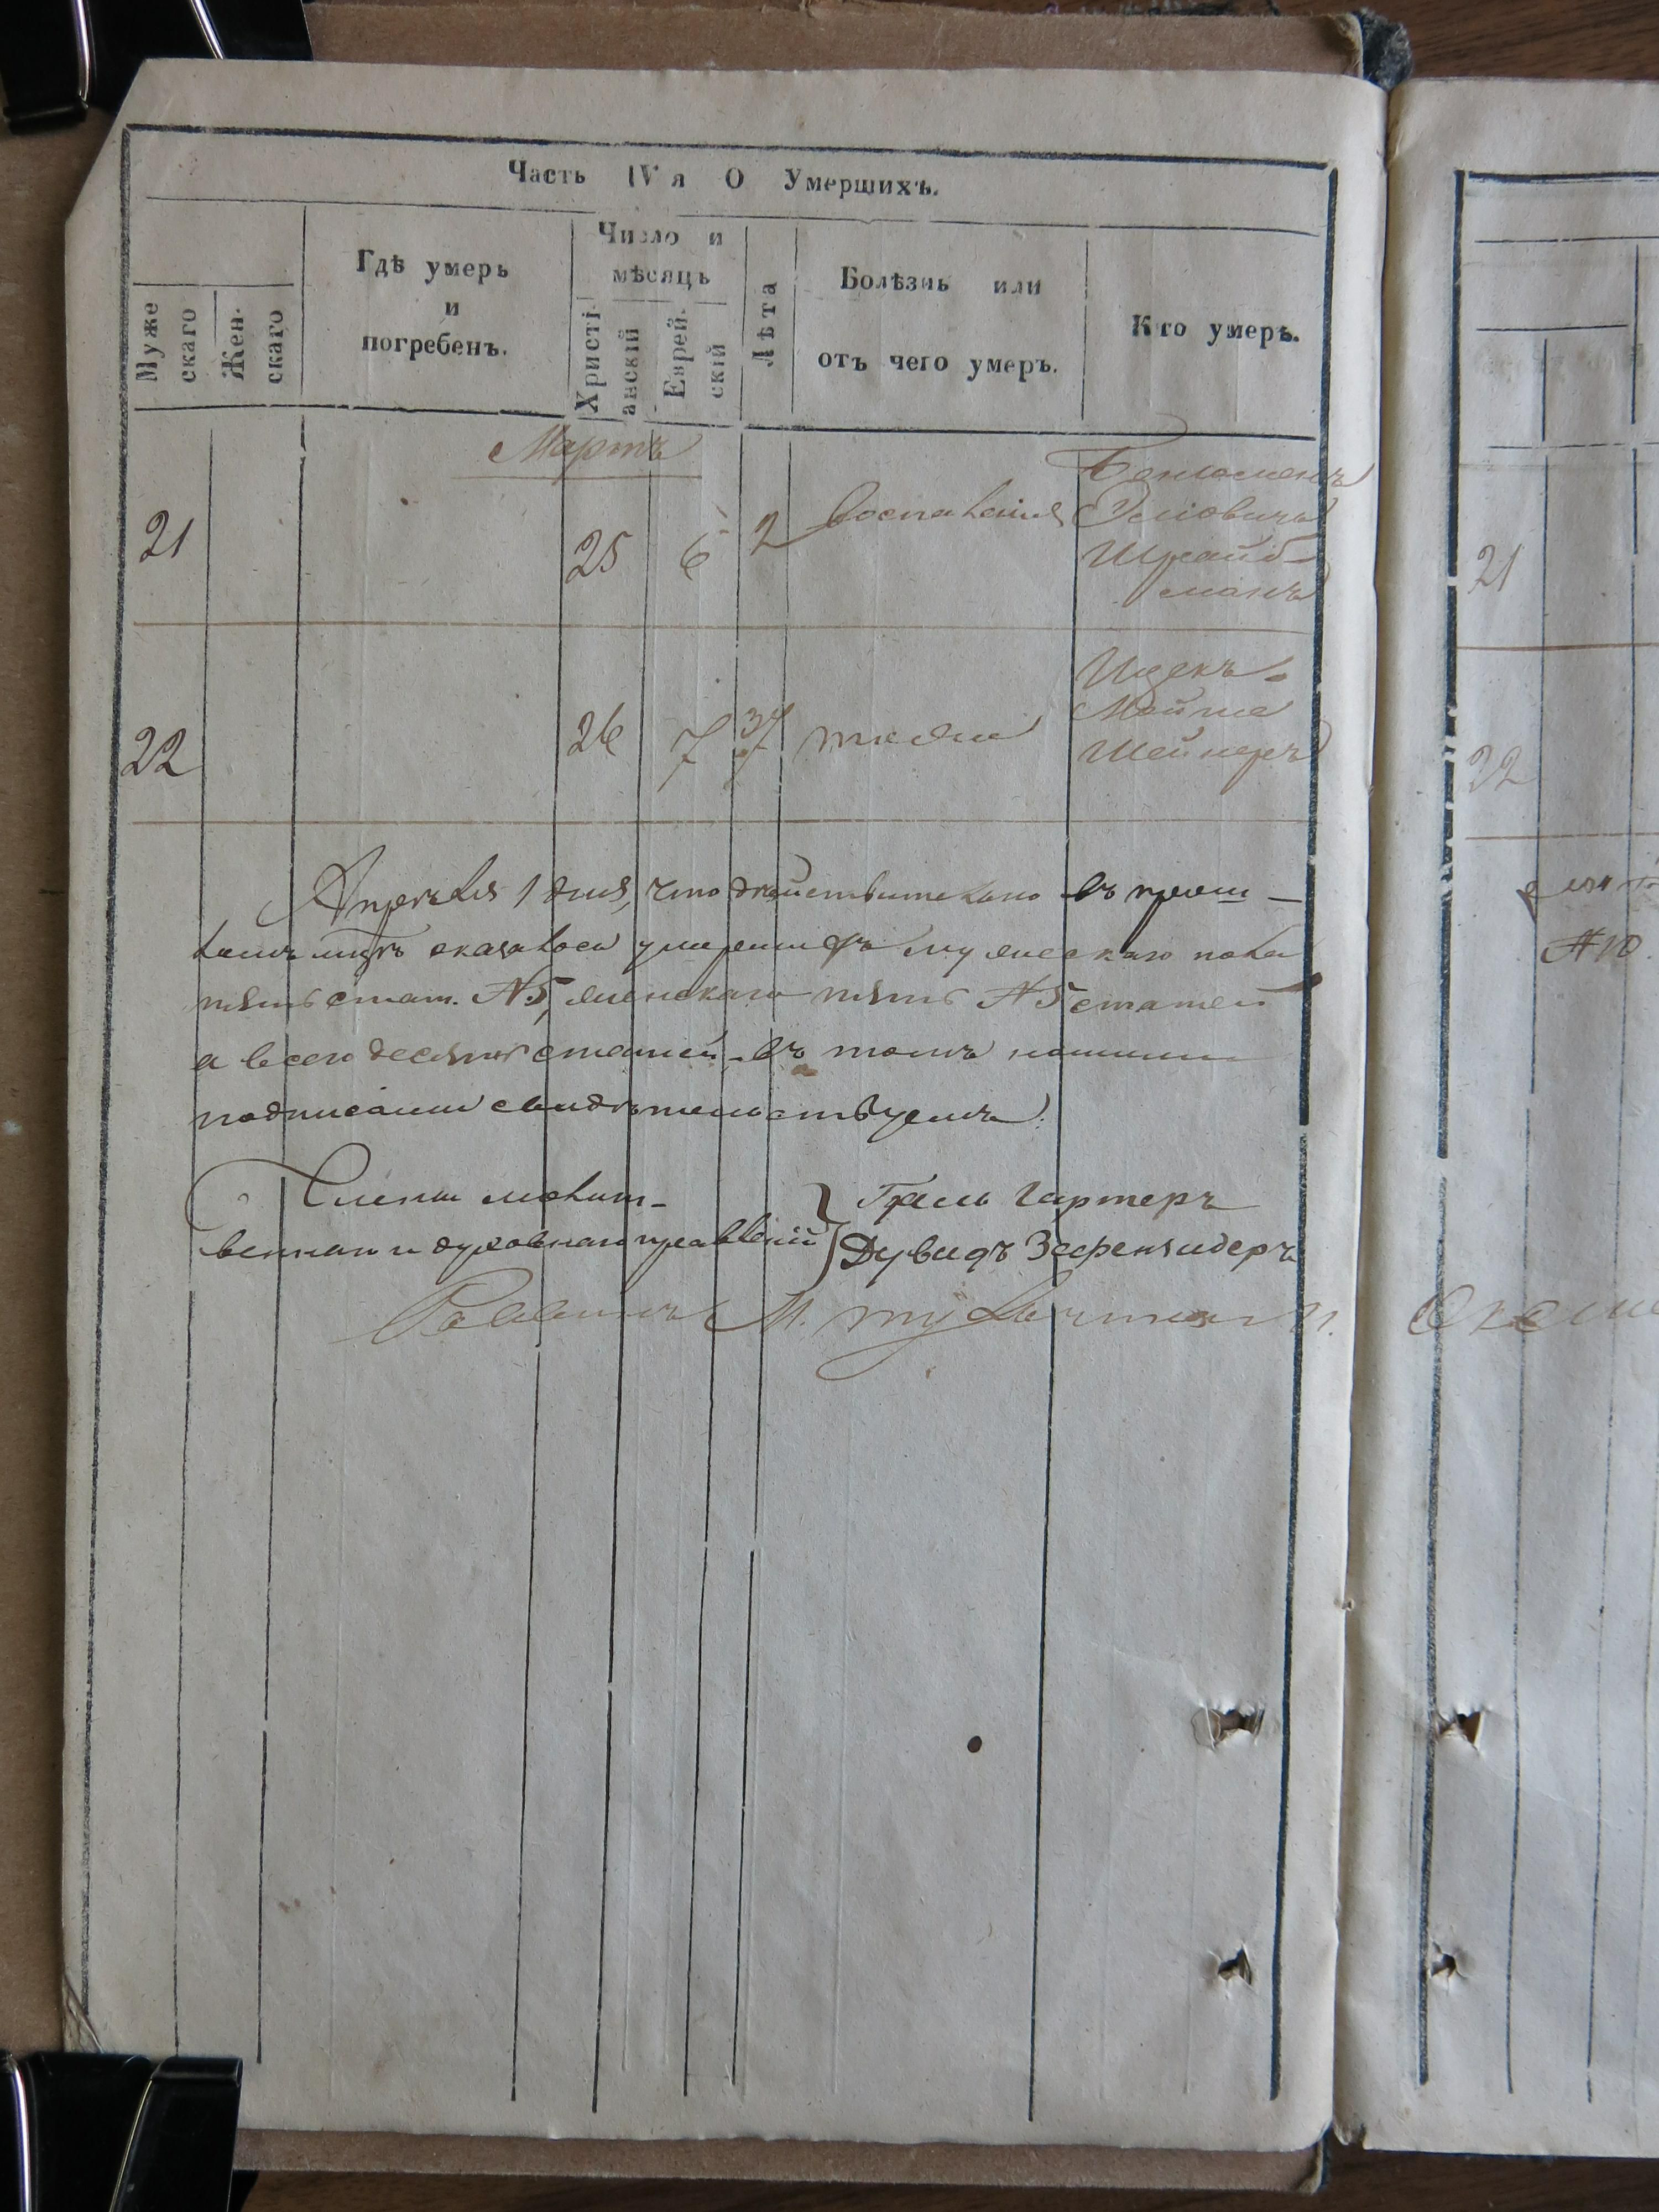 Часть IVя О Умершихъ.
Муже
скаго
Жен-
скаго
Гдѣ умеръ
и
погребенъ.
Число и
мѣсяцъ
Христі-
анскій
Еврей-
скій
Лѣта
Болѣзнь или
отъ чего умеръ.
Кто умеръ.
Мартъ
21 25 6 2 воспаленія
Шрайб-
манъ
22 26 7 37
Ицекъ-
Мойше
Шейнеръ
Апрѣля 1 дня, что дѣйствительно въ прош-
ломъ оказалось умершихъ мужескаго пола
пять стат. №5, женскаго пять №5 статей
а всего десять статей въ томъ нашими
подписами свидѣтельствуемъ.
Члены молит-
веннаго и духовнаго правленій
Гартеръ
Дувидъ
Раввинъ М.
21
22
№10.